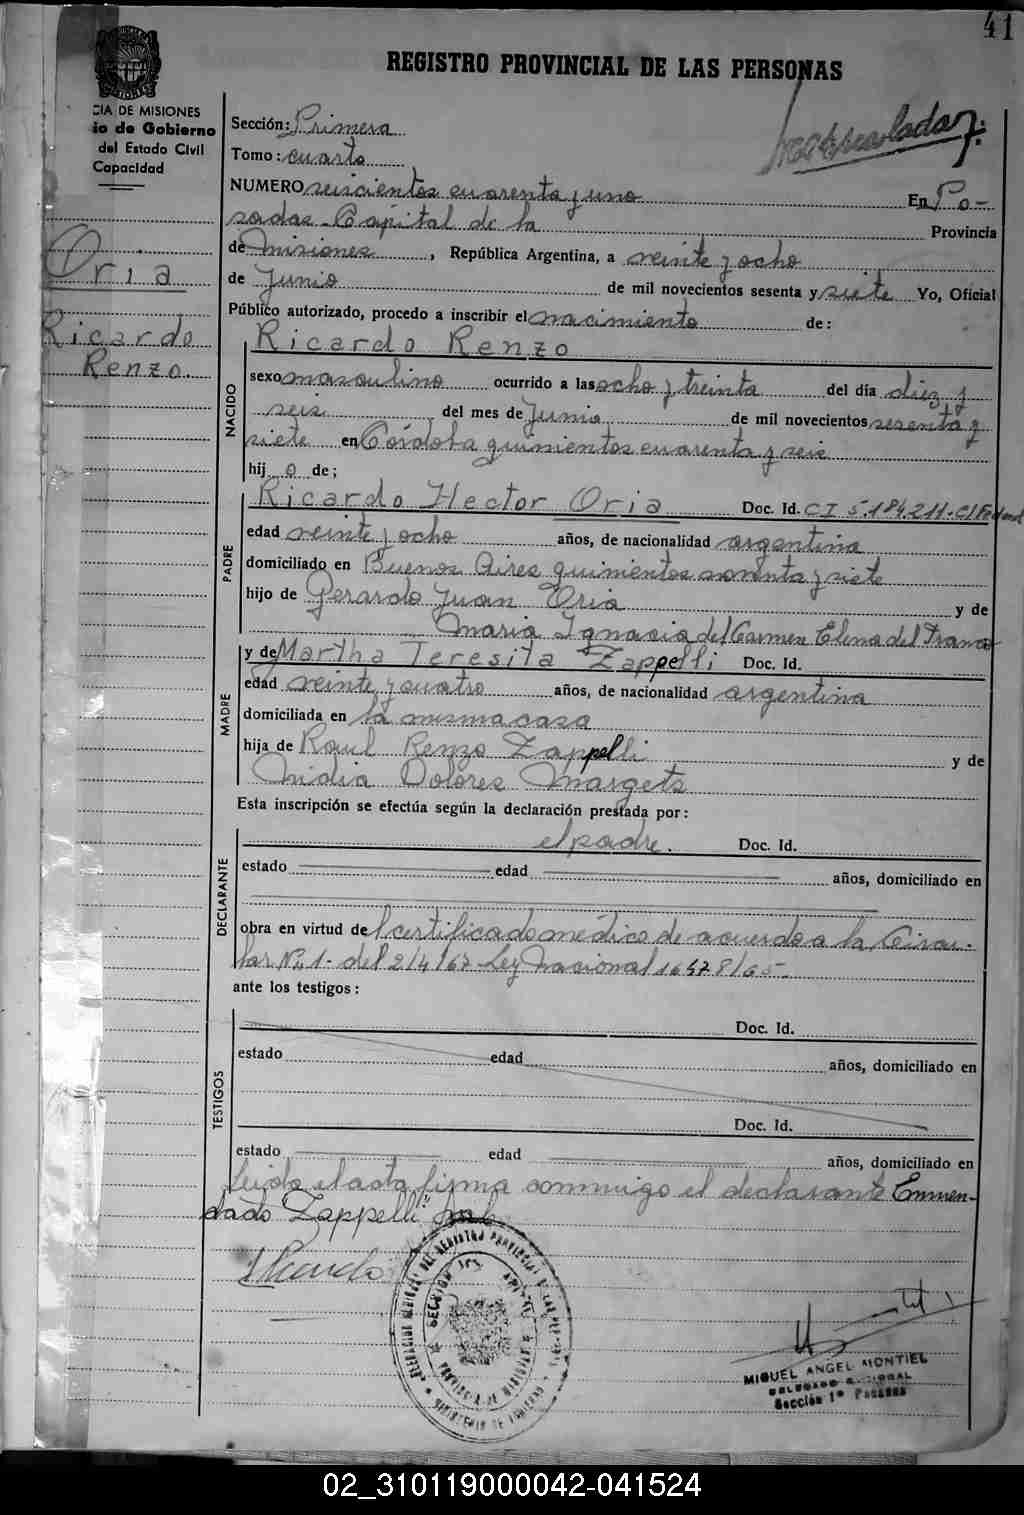 41
REGISTRO PROVINCIAL DE LAS PERSONAS
CIA DE MISIONES
io de Gobierno
del Estado Civil
Capacidad
Sección: Primera
Tomo: cuarto
NUMERO seiscientos cuarenta y uno En Po-
sadas Capital de la Provincia
de Misiones, República Argentina, a veinte y ocho
de Junio de mil novecientos sesenta y siete Yo, Oficial
Público autorizado, procedo a inscribir el nacimiento de:
Oria
Ricardo
Renzo
NACIDO
Ricardo Renzo
sexo masculino ocurrido a las ocho y treinta del día diez y
seis del mes de Junio de mil novecientos sesenta y
siete en Córdoba quinientos cuarenta y seis
hijo de;
PADRE
Ricardo Hector Oria Doc. Id. CI 5.184.211-CI Federal
edad veinte y ocho años, de nacionalidad argentina
domiciliado en Buenos Aires quinientos noventa y siete
hijo de Gerardo Juan Oria y de
Maria Ignacia del Carmen Elena del Franco
MADRE
y de Martha Teresita Zappelli Doc. Id.
edad veinte y cuatro años, de nacionalidad argentina
domiciliada en la misma casa
hija de Raul Renzo Zappelli y de
Nidia Dolores Margets
Esta inscripción se efectúa según la declaración prestada por:
DECLARANTE
el padre. Doc. Id.
estado edad años, domiciliado en
obra en virtud del certificado médico de acuerdo a la Circu-
lar Nº 1- del 2/4/67- Ley Nacional 16478/65-
ante los testigos:
TESTIGOS
Doc. Id.
estado edad años, domiciliado en
Doc. Id.
estado edad años, domiciliado en
Leída el acta firma conmigo el declarante Enmen-
dado "Zappelli" vale
MIGUEL ANGEL MONTIEL
Sección 1º Posadas
02_310119000042-041524